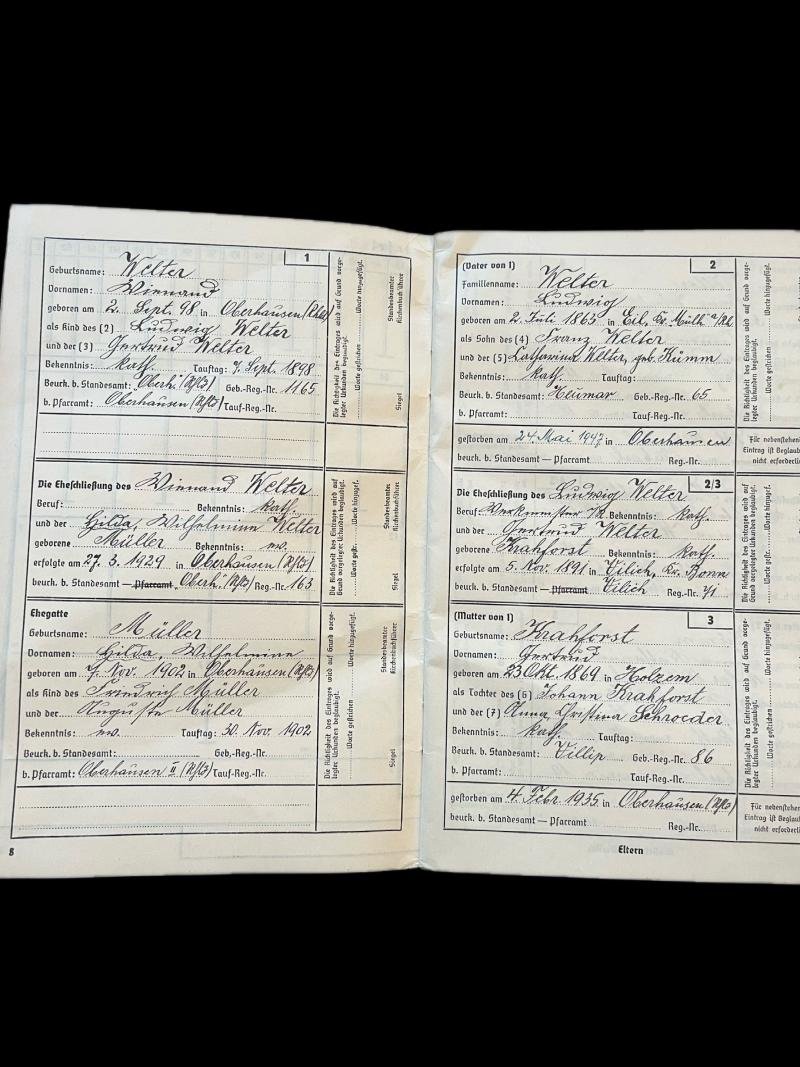 1
Geburtsname: Welter
Vornamen: Wienand
geboren am 2. Sept. 98 in Oberhausen
als Kind des (2) Ludwig Welter
und der (3) Gertrud Welter
Bekenntnis: kath. Tauftag: 7. Sept. 1898
Beurk. b. Standesamt: Oberh. Geb.-Reg.-Nr. 1165
b. Pfarramt: Oberhausen Tauf-Reg.-Nr.
Die Richtigkeit des Eintrages wird auf Grund vorge-
legter Urkunden beglaubigt.
Worte gestrichen Worte hinzugefügt.
Standesbeamter
Kirchenbuchführer
Siegel
Die Eheschließung des Wienand Welter
Beruf: Bekenntnis: kath.
und der Hilda, Wilhelmine Welter
geborene Müller Bekenntnis: ev.
erfolgte am 27. 3. 1929 in Oberhausen
beurk. b. Standesamt — Pfarramt Oberh. Reg.-Nr. 163
Die Richtigkeit des Eintrages wird auf
Grund vorgelegter Urkunden beglaubigt.
Worte gestr. Worte hinzugef.
Standesbeamter
Kirchenbuchführer
Siegel
Ehegatte
Geburtsname: Müller
Vornamen: Hilda, Wilhelmine
geboren am 7. Nov. 1902 in Oberhausen
als Kind des Friedrich Müller
und der Auguste Müller
Bekenntnis: ev. Tauftag: 30. Nov. 1902
Beurk. b. Standesamt: Geb.-Reg.-Nr.
b. Pfarramt: Oberhausen II Tauf-Reg.-Nr.
Die Richtigkeit des Eintrages wird auf Grund vorge-
legter Urkunden beglaubigt.
Worte gestrichen Worte hinzugefügt.
Standesbeamter
Kirchenbuchführer
Siegel
8
(Vater von 1) 2
Familienname: Welter
Vornamen: Ludwig
geboren am 2. Juli 1865 in Eil, Kr. Mülh. a/Rh
als Sohn des (4) Franz Welter
und der (5) Catharina Welter, geb. Kümm
Bekenntnis: kath. Tauftag:
Beurk. b. Standesamt: Heumar Geb.-Reg.-Nr. 65
b. Pfarramt: Tauf-Reg.-Nr.
Die Richtigkeit des Eintrages wird auf Grund vorge-
legter Urkunden beglaubigt.
Worte gestrichen Worte hinzugefügt.
gestorben am 24. Mai 1947 in Oberhausen
beurk. b. Standesamt — Pfarramt Reg.-Nr.
Für nebenstehen
Eintrag ist Beglau
nicht erforderli
Die Eheschließung des Ludwig Welter 2/3
Beruf Bekenntnis: kath.
und der Gertrud Welter
geborene Krahforst Bekenntnis: kath.
erfolgte am 5. Nov. 1891 in Vilich, Kr. Bonn
beurk. b. Standesamt — Pfarramt Vilich Reg.-Nr. 71
Die Richtigkeit des Eintrages wird auf
Grund vorgelegter Urkunden beglaubigt.
Worte gestr. Worte hinzugef.
(Mutter von 1) 3
Geburtsname: Krahforst
Vornamen: Gertrud
geboren am 23 Okt. 1869 in Holzem
als Tochter des (6) Johann Krahforst
und der (7) Anna Christina Schroeder
Bekenntnis: kath. Tauftag:
Beurk. b. Standesamt: Villip Geb.-Reg.-Nr. 86
b. Pfarramt: Tauf-Reg.-Nr.
Die Richtigkeit des Eintrages wird auf Grund vorge-
legter Urkunden beglaubigt.
Worte gestrichen Worte hinzugefügt.
gestorben am 4. Febr. 1935 in Oberhausen
beurk. b. Standesamt — Pfarramt Reg.-Nr.
Für nebenstehen
Eintrag ist Beglau
nicht erforderli
Eltern